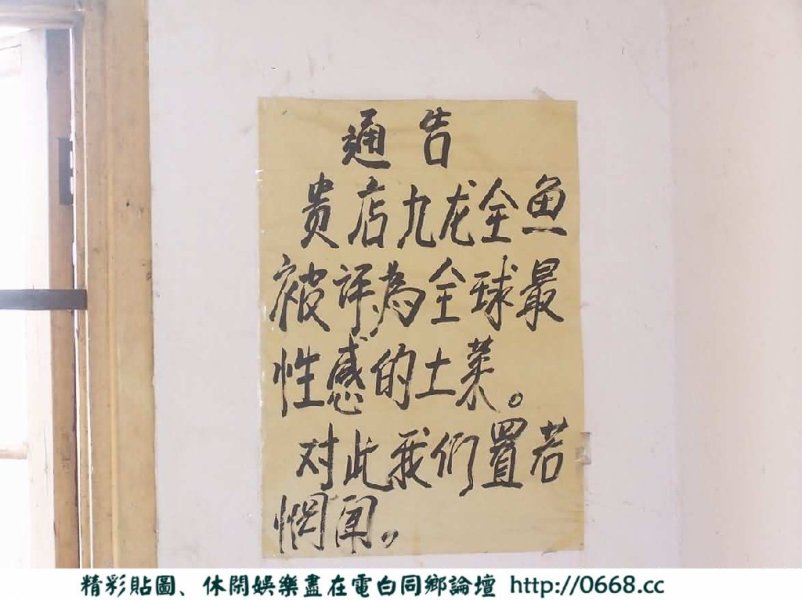 通告
贵店九龙全鱼
被评為全球最
性感的土菜。
对此我们置若
惘闻。
精彩貼圖、休閑娛樂盡在電白同鄉論壇 http://0668.cc